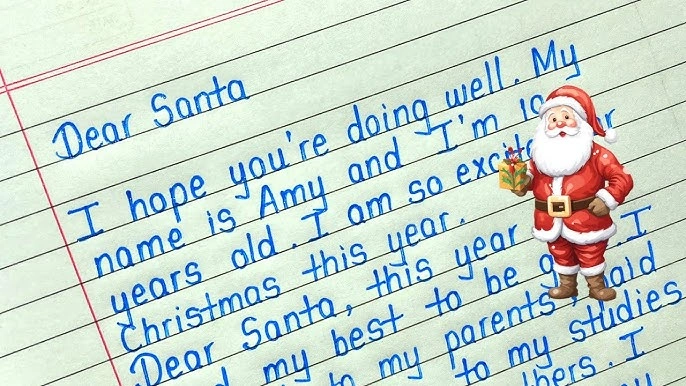 Dear Santa
I hope you're doing well. My
name is Amy and I'm
years old. I am so
Christmas this year.
Dear Santa, this year I
my best to be
to my parents,
to my studies
I